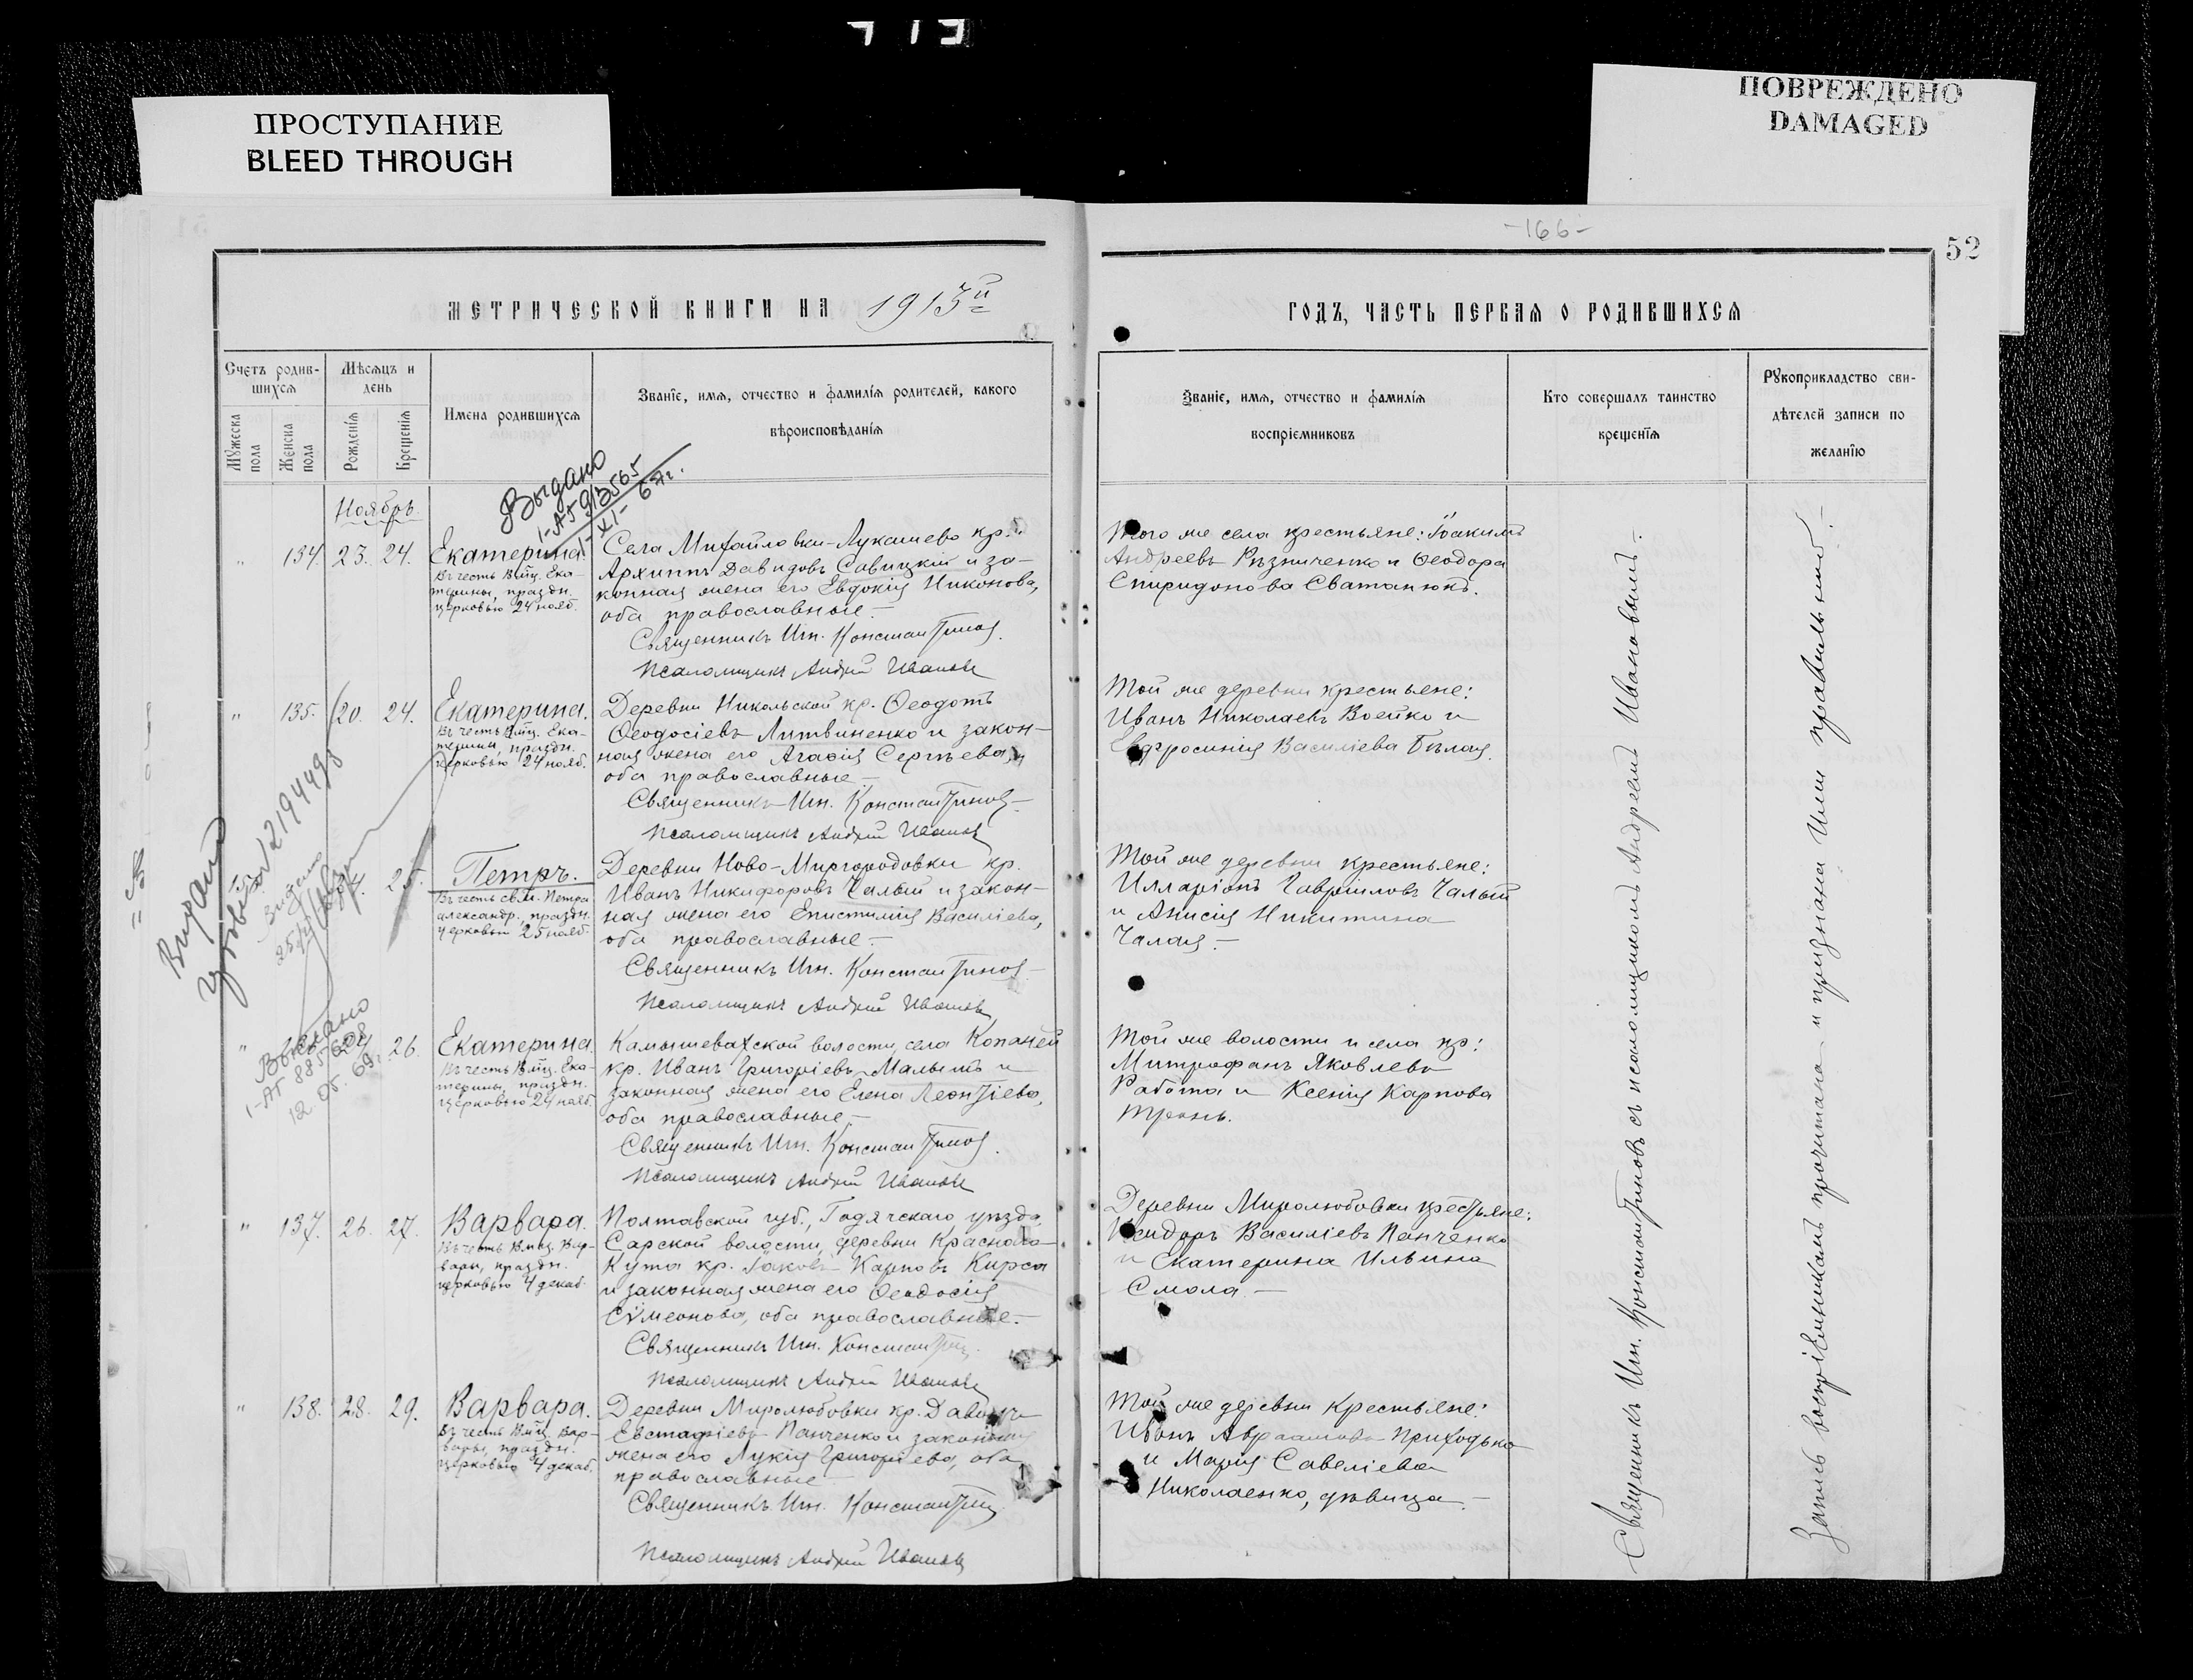 ПРОСТУПАНИЕ
BLEED THROUGH
ПОВРЕЖДЕНО
DAMAGED
-166-
52
МЕТРИЧЕСКОЙ КНИГИ НА 1913й
ГОДЪ, ЧАСТЬ ПЕРВАЯ О РОДИВШИХСЯ
Счетъ родив-
шихся
Мѣсяцъ и
день
Мужеска пола
Женска пола
Рожденія
Крещенія
Имена родившихся
Званіе, имя, отчество и фамилія родителей, какого
вѣроисповѣданія
Званіе, имя, отчество и фамилія
воспріемниковъ
Кто совершалъ таинство
крещенія
Рукоприкладство сви-
дѣтелей записи по
желанію
Выдано
Ноябрь.
" 134. 23. 24. Екатерина.
Въ честь Вмц. Ека-
терины, праздн.
церковью 24 нояб.
Села Михайловки-Лукашево кр.
Архиппъ Давидовъ Савицкій и за-
конная жена его Евдокія Никонова,
оба православные.-
Священникъ Ин. Константинов
Псаломщикъ Андрей Иванов
Того же села крестьяне: Іоакимъ
Андреевъ Рѣзниченко и Ѳеодора
Спиридонова Сватанюкъ.
" 135. 20. 24. Екатерина.
Въ честь Вмц. Ека-
терины, праздн.
церковью 24 нояб.
Деревни Никольской кр. Ѳеодотъ
Ѳеодосіевъ Литвиненко и закон-
ная жена его Агаѳія Сергѣева,
оба православные.-
Священникъ Ин. Константинов
Псаломщикъ Андрей Иванов
Той же деревни крестьяне:
Иванъ Николаевъ Воейко и
Евфросинія Василіева Бѣлая.
25. Петръ.
Въ честь св.м. Петра
александр., праздн.
церковью 25 нояб.
Деревни Ново-Миргородовки кр.
Иванъ Никифоровъ Чалый и закон-
ная жена его Епистимія Василіева,
оба православные.-
Священникъ Ин. Константинов
Псаломщикъ Андрей Иванов
Той же деревни крестьяне:
Илларіонъ Гавріиловъ Чалый
и Анисія Никитина
Чалая.-
Выдано
12.05.69г.
" 26. Екатерина.
Въ честь Вмц. Ека-
терины, праздн.
церковью 24 нояб.
Камышевахской волости, села Копаней
кр. Иванъ Григоріевъ Малышъ и
законная жена его Елена Леонтіева,
оба православные.-
Священникъ Ин. Константинов
Псаломщикъ Андрей Иванов
Той же волости и села кр:
Митрофанъ Яковлевъ
Работа и Ксенія Карпова
" 137. 26. 27. Варвара.
Въ честь Вмц. Вар-
вары, праздн.
церковью 4 декаб.
Полтавской губ., Гадячскаго уѣзда,
Сарской волости, деревни Краснаго-
Кута кр. Іаковъ Карповъ Кирса
и законная жена его Ѳеодосія
Сѵмеонова, оба православные.-
Священникъ Ин. Константинов
Псаломщикъ Андрей Иванов
Деревни Миролюбовки крестьяне:
Исидоръ Василіевъ Панченко
и Екатерина Ильина
Смола.-
" 138. 28. 29. Варвара.
Въ честь Вмц. Вар-
вары, праздн.
церковью 4 декаб.
Деревни Миролюбовки кр. Давидъ
Евстафіевъ Панченко и законная
жена его Лукія Григоріева, оба
православные.-
Священникъ Ин. Константинов
Псаломщикъ Андрей Иванов
Той же деревни крестьяне:
Иванъ Авраамовъ Приходько
и Марія Савеліева
Николаенко, дѣвица.-
Священникъ Ин. Константиновъ съ псаломщикомъ Андреемъ Ивановымъ.-
Запись воспріемникамъ прочитана и признана ими правильной.-